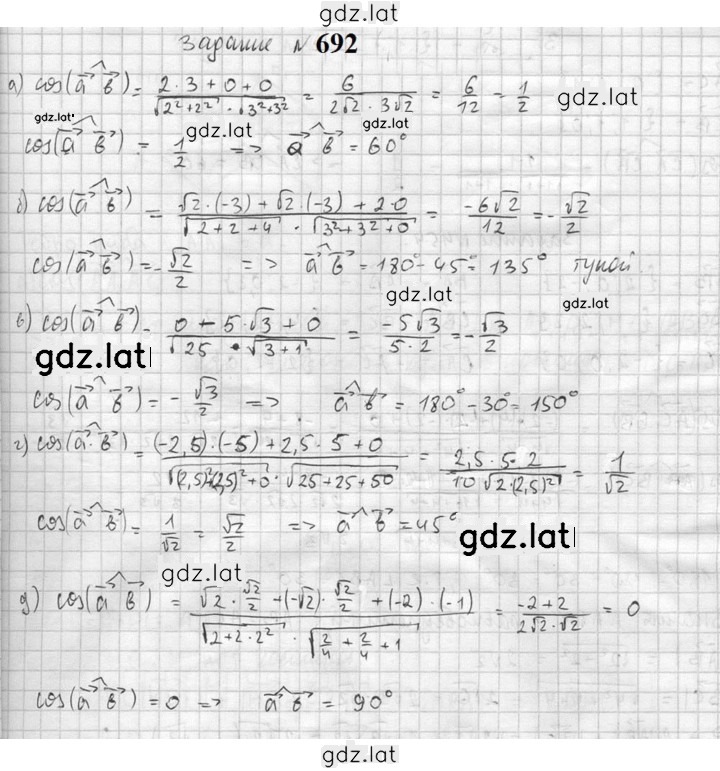 gdz.lat
Задание № 692
а) cos(a⃗ ^ b⃗) = (2·3 + 0 + 0) / (√(2²+2²) · √(3²+3²)) = 6 / (2√2 · 3√2) = 6/12 = 1/2
gdz.lat
gdz.lat gdz.lat gdz.lat
cos(a⃗ ^ b⃗) = 1/2 => a⃗ ^ b⃗ = 60°
б) cos(a⃗ ^ b⃗) = (√2·(-3) + √2·(-3) + 2·0) / (√(2+2+4) · √(3²+3²+0)) = -6√2 / 12 = -√2/2
cos(a⃗ ^ b⃗) = -√2/2 => a⃗ ^ b⃗ = 180° - 45° = 135° тупой
gdz.lat gdz.lat
в) cos(a⃗ ^ b⃗) - (0 - 5·√3 + 0) / (√25 · √(3+1)) = -5√3 / (5·2) = -√3/2
gdz.lat
cos(a⃗ ^ b⃗) = -√3/2 => a⃗ ^ b⃗ = 180° - 30° = 150°
г) cos(a⃗ · b⃗) = ((-2,5)·(-5) + 2,5·5 + 0) / (√((2,5)²+(2,5)²+0) · √(25+25+50)) = (2,5·5·2) / (10√(2·(2,5)²)) = 1/√2
cos(a⃗ ^ b⃗) = 1/√2 = √2/2 => a⃗ ^ b⃗ = 45°
gdz.lat
gdz.lat
д) cos(a⃗ ^ b⃗) = (√2·√2/2 + (-√2)·√2/2 + (-2)·(-1)) / (√(2+2·2²) · √(2/4 + 2/4 + 1)) = (-2+2) / (2√2·√2) = 0
cos(a⃗ ^ b⃗) = 0 => a⃗ ^ b⃗ = 90°
gdz.lat